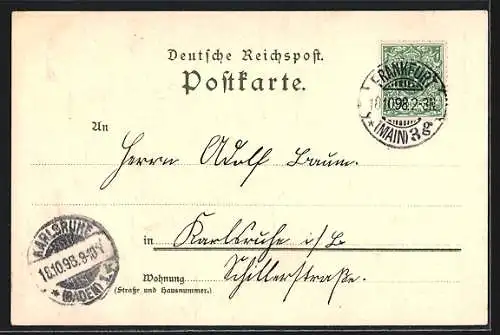 Deutsche Reichspost.
Postkarte.
FRANKFURT
18.10.98.2-3N.
* (MAIN) 3 g
An
Herrn Adolf Baum.
in Karlsruhe i/B
Schillerstraße.
Wohnung
(Straße und Hausnummer.)
KARLSRUHE
18.10.98.
(BADEN)